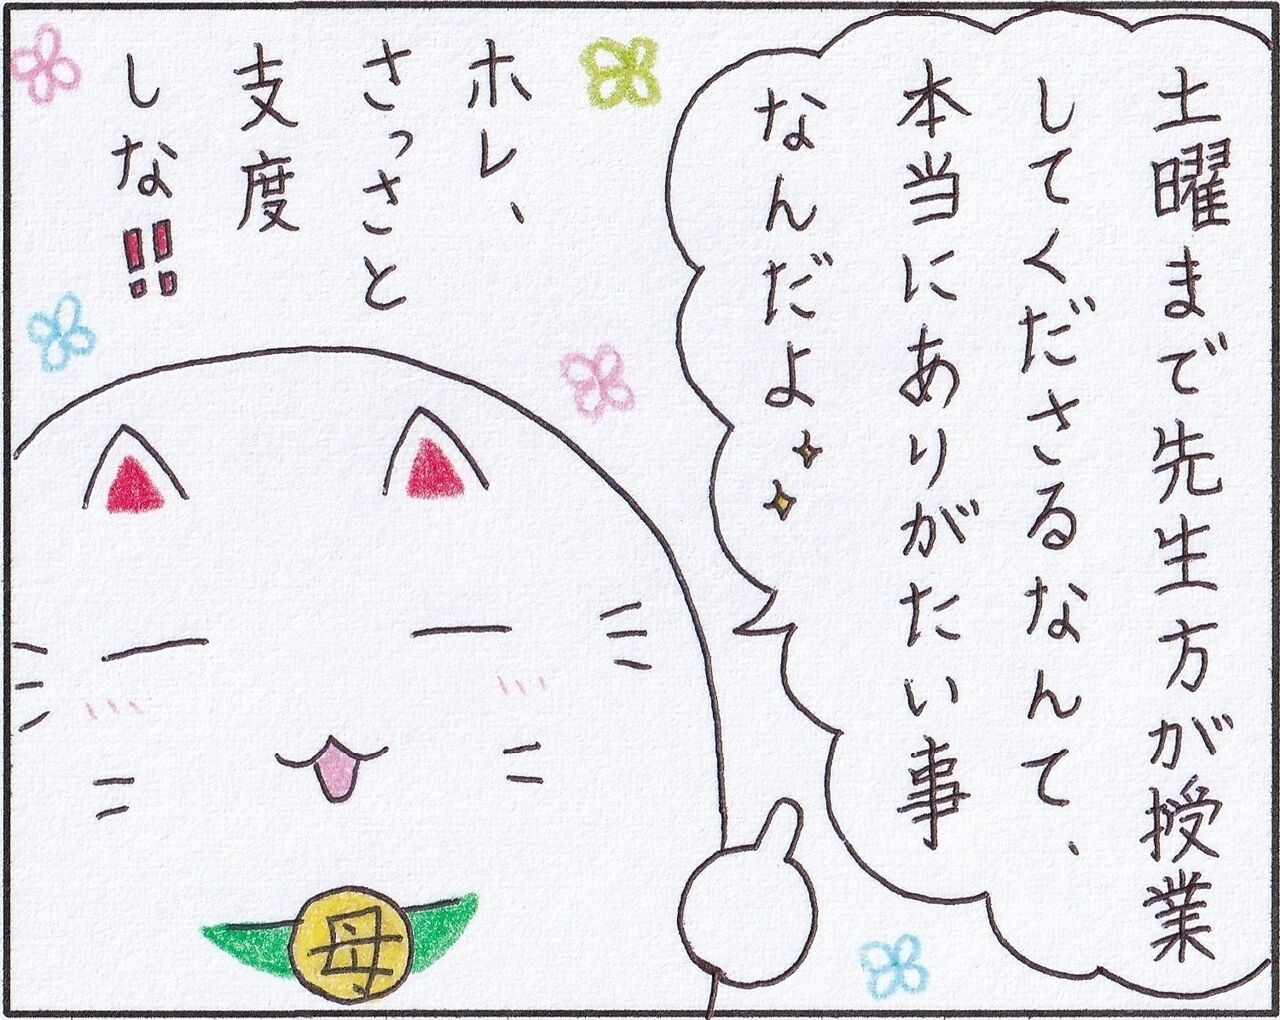 土曜まで先生方が授業
してくださるなんて、
本当にありがたい事
なんだよ
ホレ、
さっさと
支度
しな!!
母